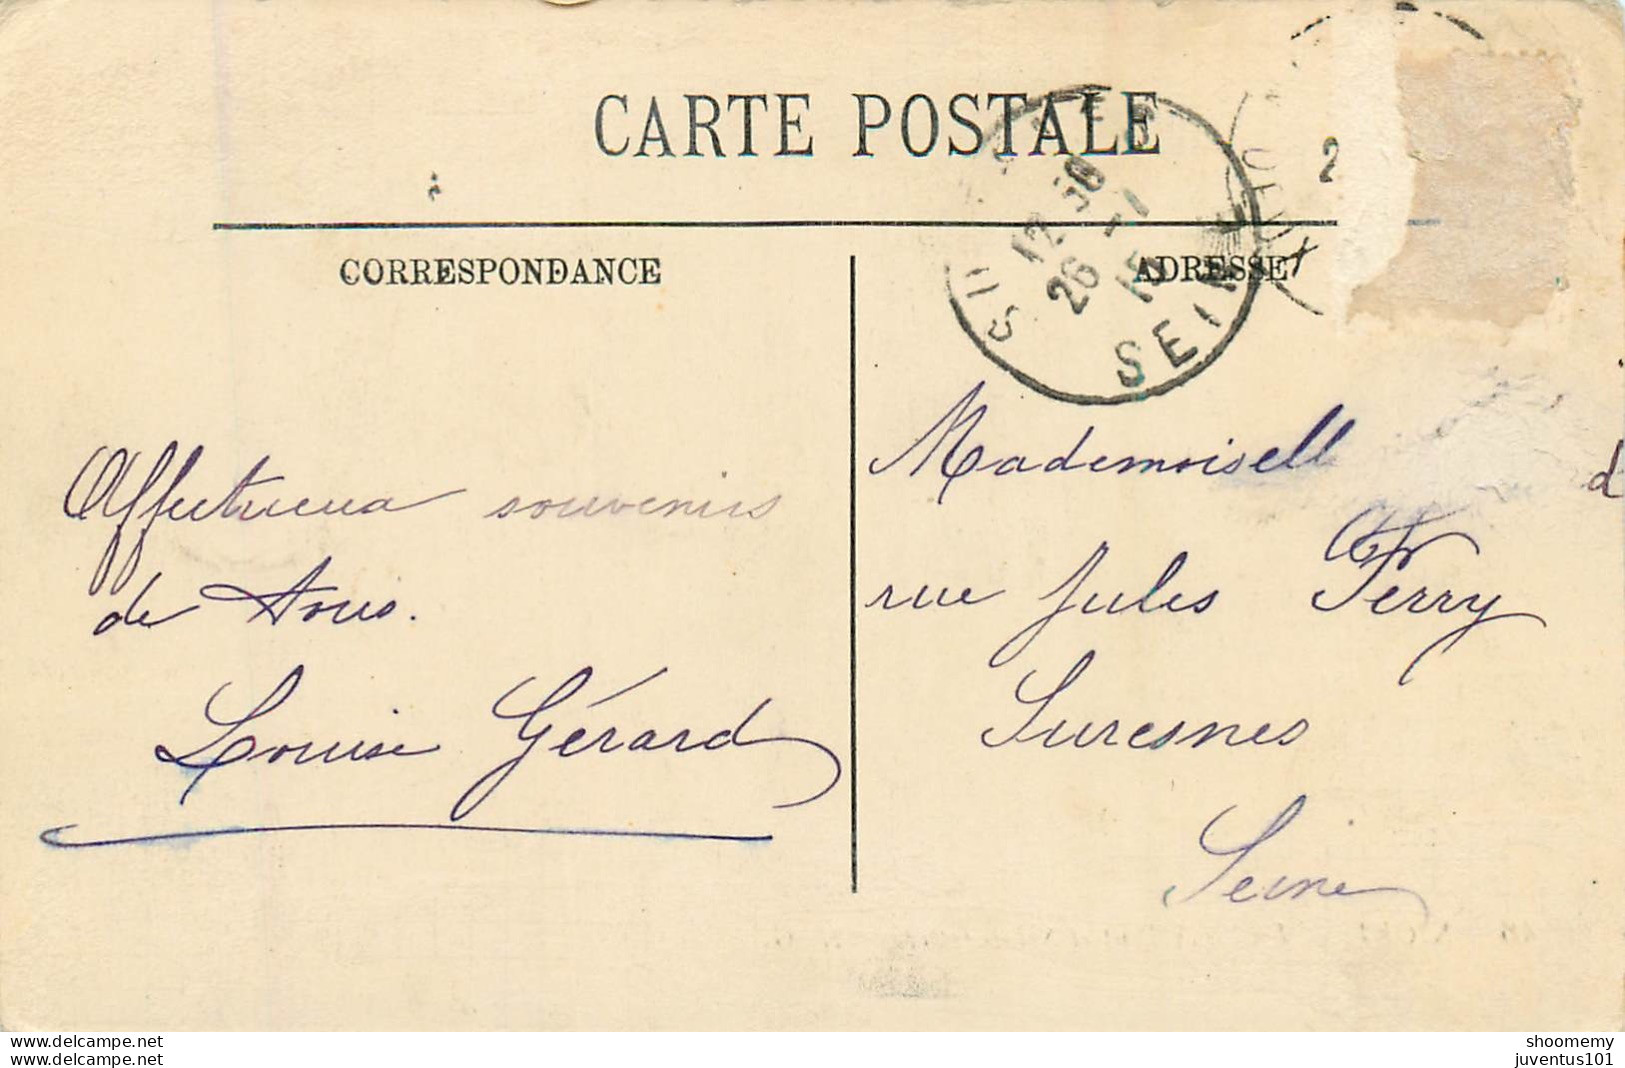 CARTE POSTALE
CORRESPONDANCE
ADRESSE
12 30
26 -1
15
SEINE
2
Affectueux souvenirs
de tous.
Louise Gérard
Mademoisell
d
rue Jules Ferry
Suresnes
Seine
www.delcampe.net
www.delcampe.net
shoomemy
juventus101